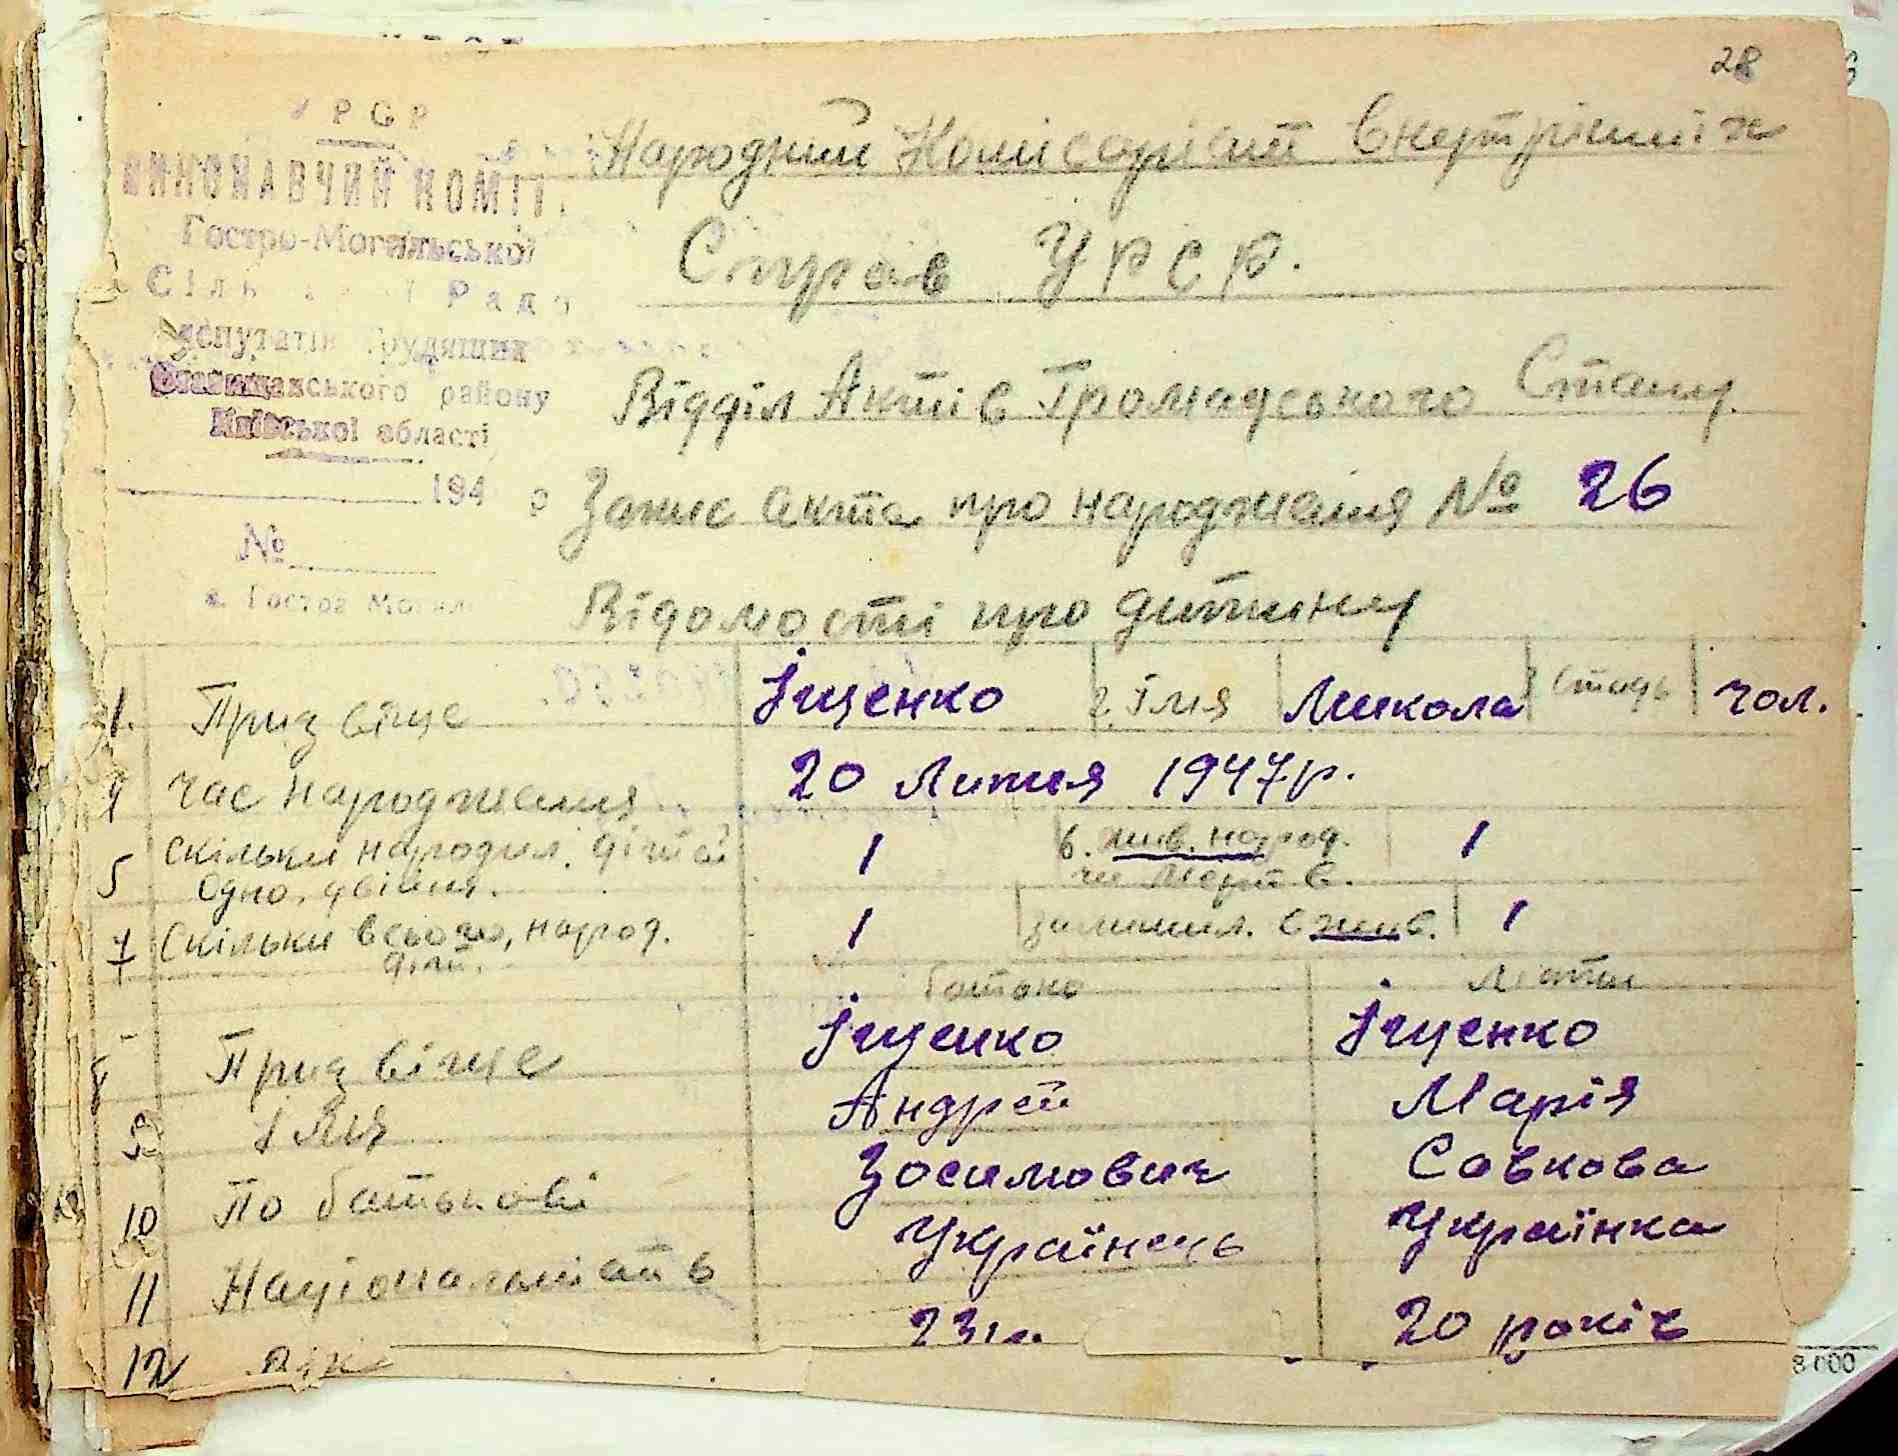 28
УРСР
ВИКОНАВЧИЙ КОМІТ
Гостро-Могильської
Сіль Рад
депутатів трудящих
Ставищанського району
Київської області
194 р
№
с. Гостра Могила
Народний Комісаріат Внутрішніх
Справ УРСР.
Відділ Актів Громадського Стану
Запис акта про народження № 26
Відомості про дитину
1. Призвіще Іщенко 2. Імя Микола Стать чол.
4 час народження 20 Лютня 1947р.
5 скільки народил. дітей 1 6. жив. народ. 1
одно, двійня. чи мертв.
7 Скільки всього, народ. 1 залишил. в жив. 1
діт.
батько Мати
8 Призвіще Іщенко Іщенко
9 Імя Андрей Марія
10 По батькові Зосимович Савкова
11 Національність Українець Українка
12 Вік 23 20 років
8 000